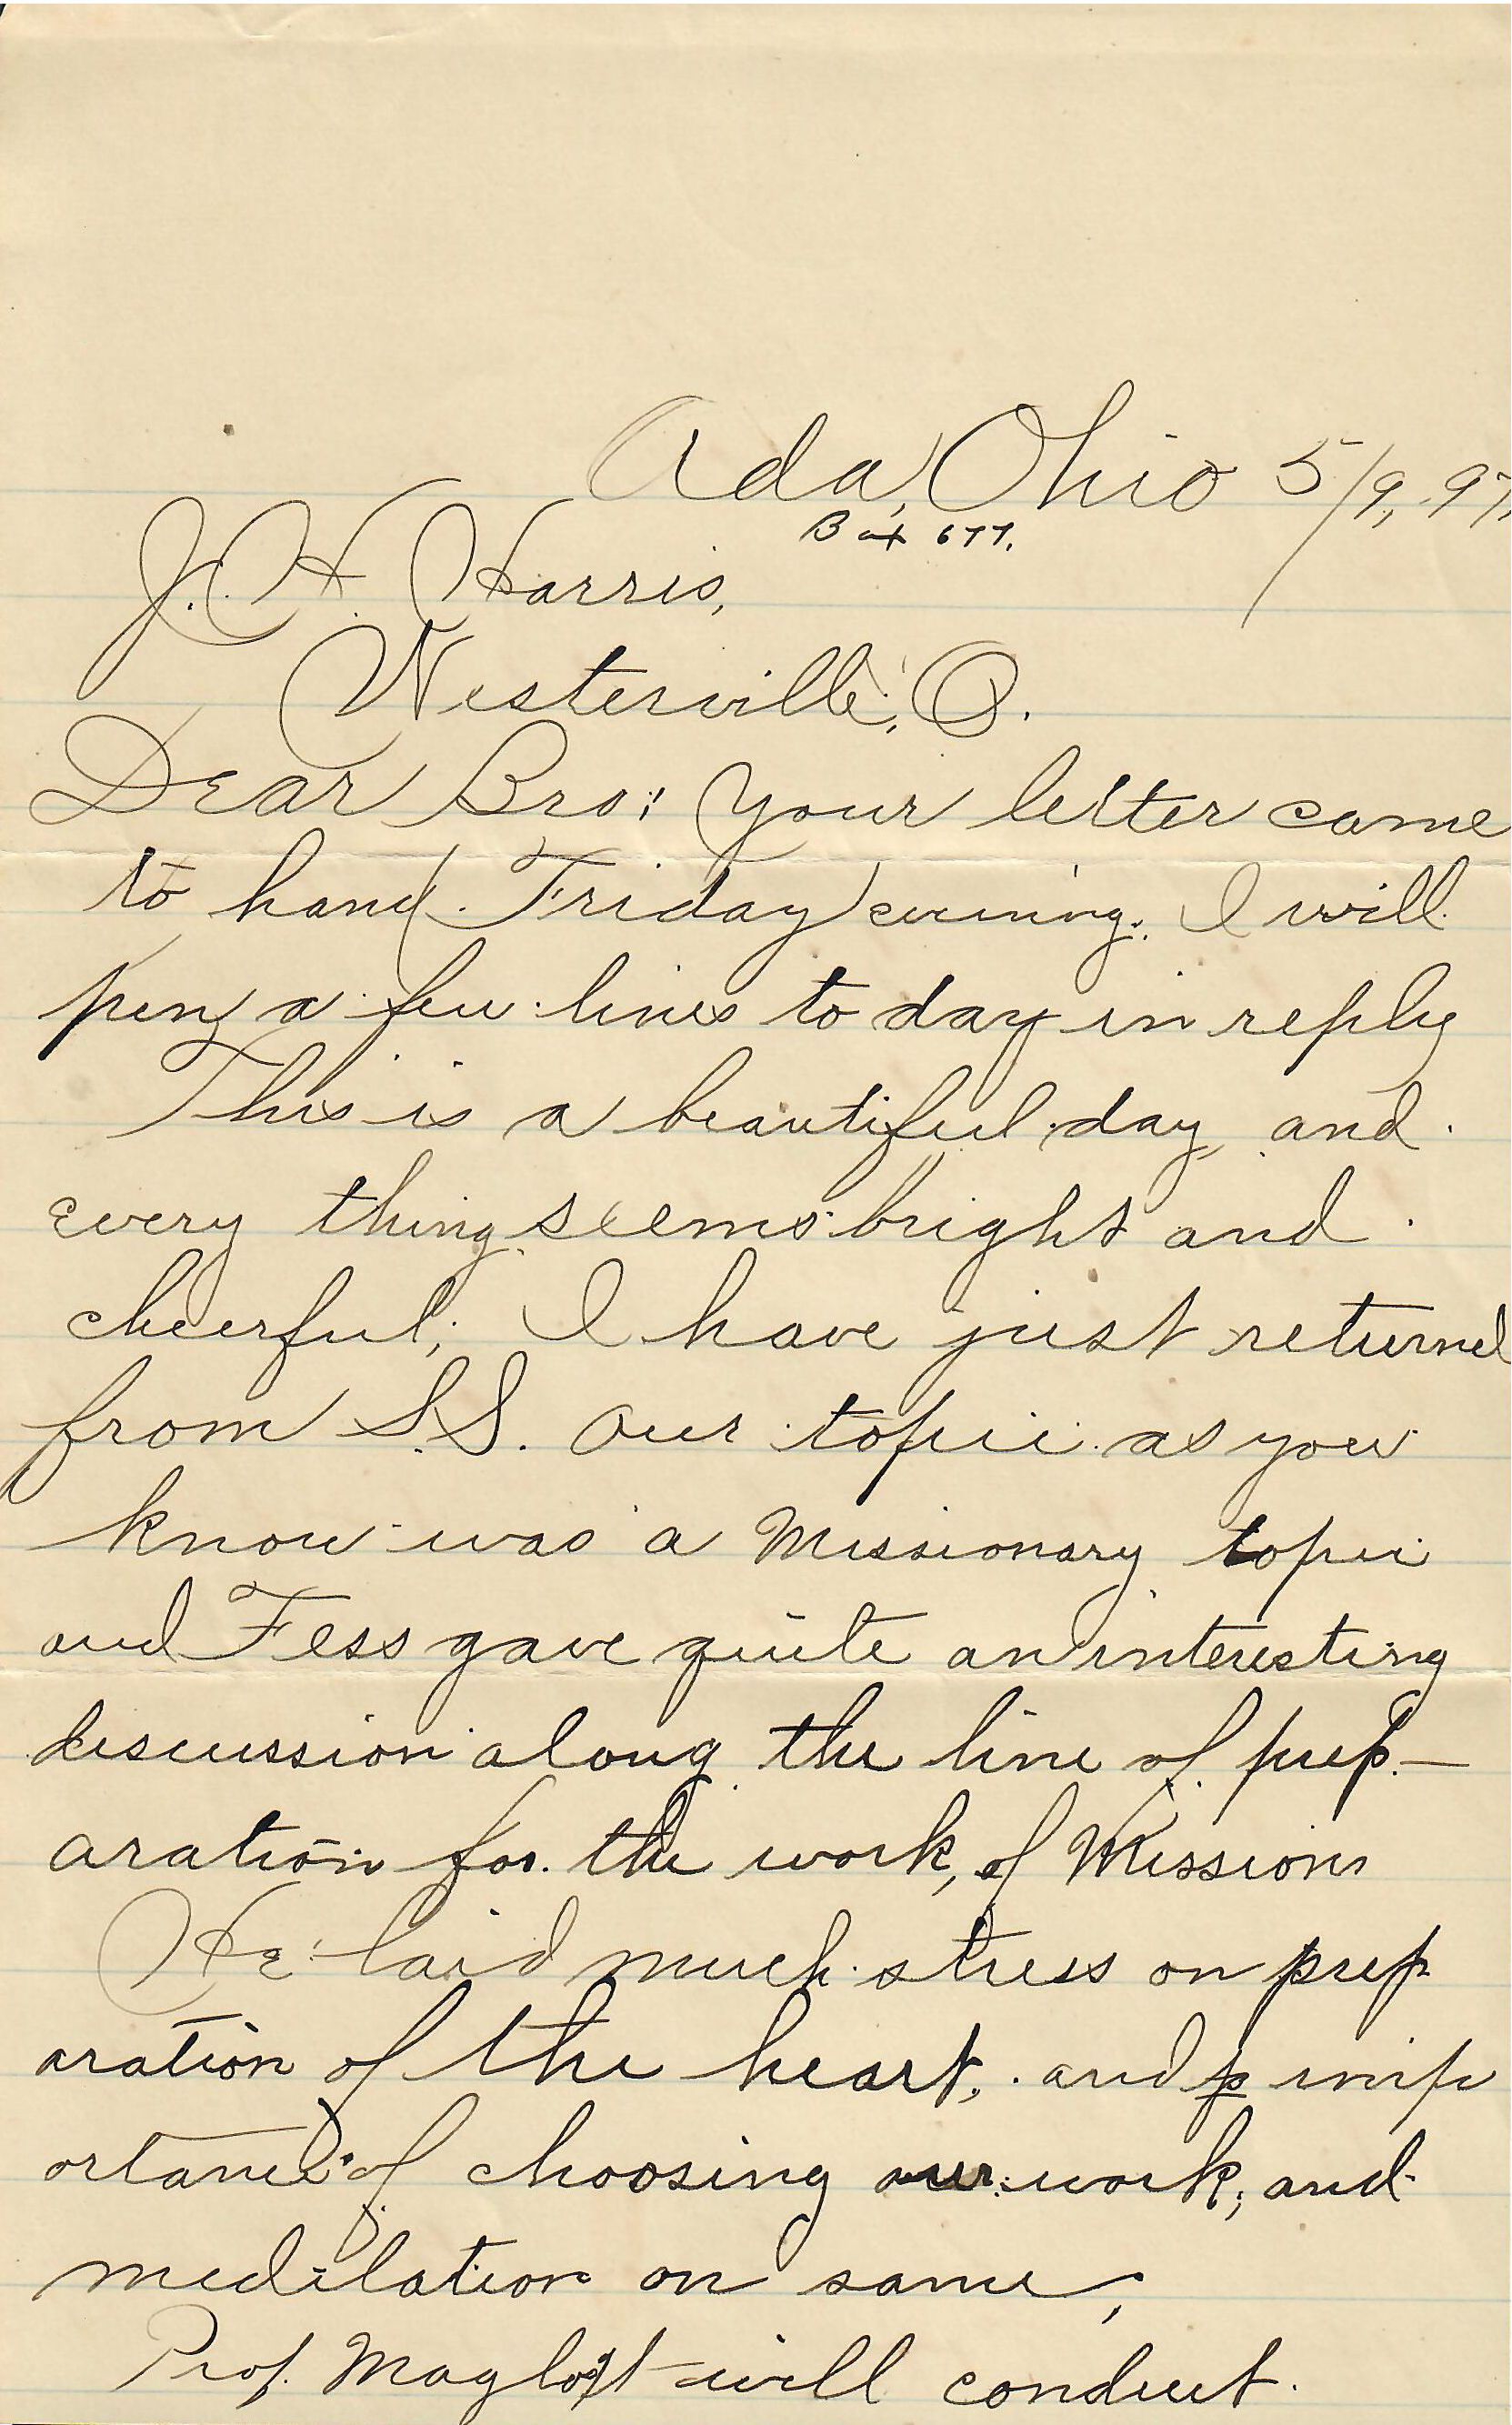 Ada, Ohio 5/9, 97,
Box 677.
J. H. Harris,
Westerville, O.
Dear Bro: Your letter came
to hand Friday evening. I will
pen a few lines to day in reply
This is a beautiful day, and
every thing seems bright and
cheerful; I have just returned
from S.S. Our topic as you
know was a Missionary topic
and Fess gave quite an interesting
discussion along the line of prep-
aration for the work, of Missions
He laid much stress on prep
aration of the heart, and imp
ortance of choosing our work; and
meditation on same;
Prof. Maglott will conduct.